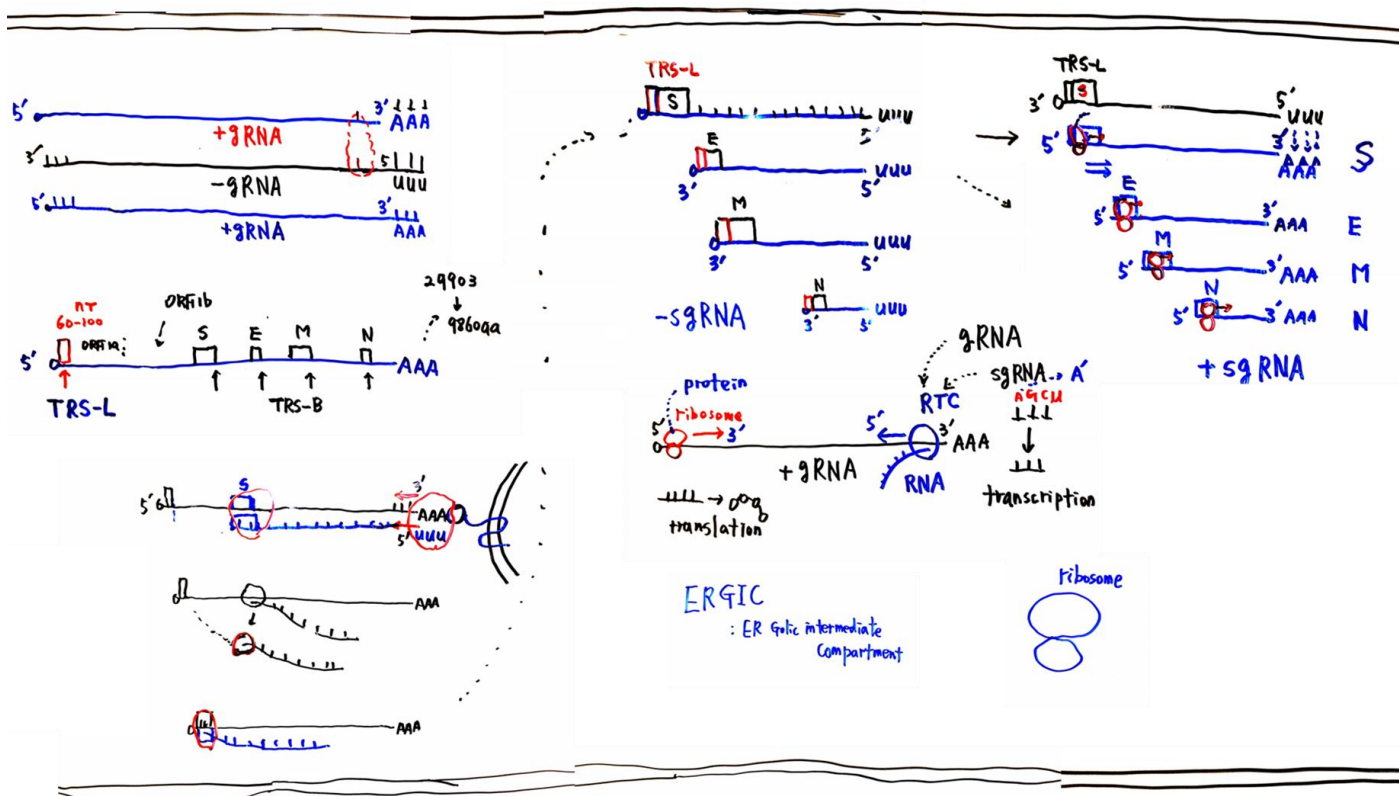 5' 3' AAA
+gRNA
3' 5'
-gRNA UUU
5' 3'
+gRNA AAA
29903
98600a
NT
60-100
ORF1a:
ORF1b
S E M N
5' AAA
TRS-L TRS-B
S
5' 3'
AAA
5' UUU
AAA
AAA
TRS-L
S
UUU
E
UUU
3' 5'
M
UUU
3' 5'
N
UUU
3' 5'
-sgRNA
TRS-L
S
3' 5'
UUU
5' 3'
AAA S
E
5' 3' AAA E
M
5' 3' AAA M
N
5' 3' AAA N
+sgRNA
gRNA
sgRNA A'
RTC AGCU
protein
ribosome
5' 3' 5' 3' AAA
+gRNA
RNA
translation
transcription
ERGIC
: ER Golic intermediate
compartment
ribosome